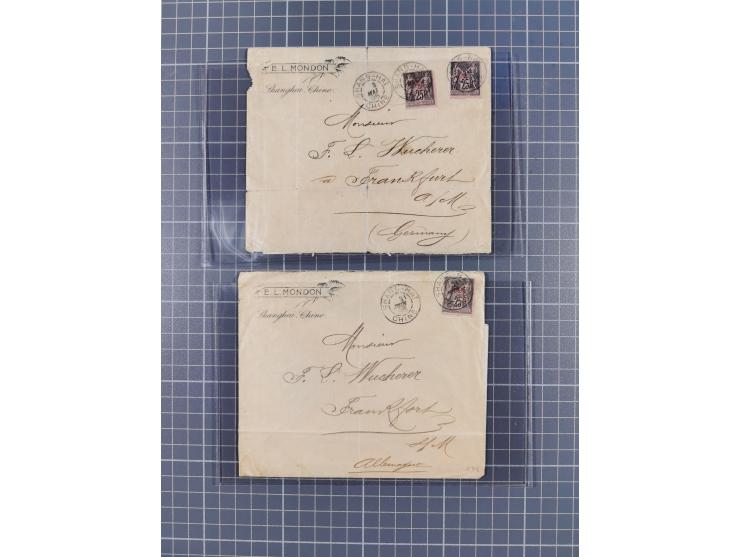 E. L. MONDON
Shanghai, Chine
SHANG-HAI
3
MAI
CHINE
SHANG-HAI
25
25
Monsieur
F. L. Wucherer
a Frankfurt
a/M
(Germany)
E. L. MONDON
Shanghai, Chine
SHANG-HAI
CHINE
SHANG-HAI
25
Monsieur
F. L. Wucherer
Frankfort
s/M
Allemagne